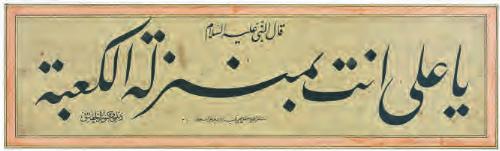 قال النبي عليه السلام
يا علي انت بمنزلة الكعبة